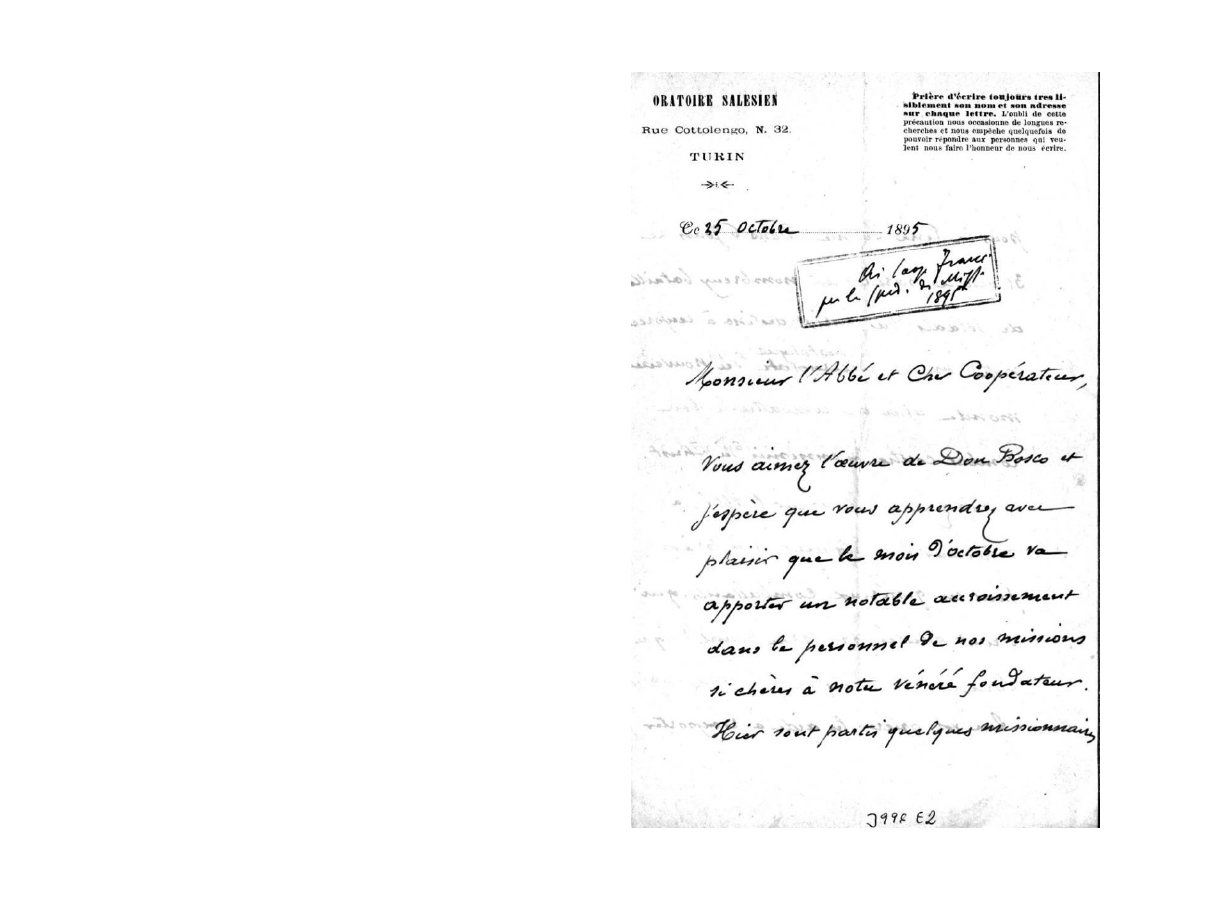 ORATOIRE SALESIEN
Rue Cottolengo, N. 32.
TURIN
Prière d'écrire toujours tres li-
siblement son nom et son adresse
sur chaque lettre. L'oubli de cette
précaution nous occasionne de longues re-
cherches et nous empêche quelquefois de
pouvoir répondre aux personnes qui veu-
lent nous faire l'honneur de nous écrire.
Ce 25 Octobre 1895
Ai Coop Franc
per la sped. di Miss.
1895
Monsieur l'Abbé et Cher Coopérateur,
Vous aimez l'œuvre de Don Bosco et
j'espère que vous apprendrez avec
plaisir que le mois d'octobre va
apporter un notable accroissement
dans le personnel de nos missions
si chères à notre vénéré fondateur.
Hier sont partis quelques missionnaires
E2